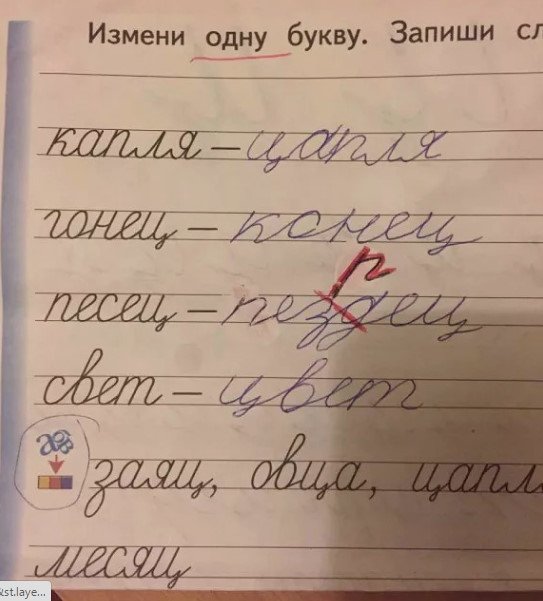 Измени одну букву. Запиши сл
капля – цапля
гонец – конец
р
песец – пездец
свет – цвет
заяц, овца, цапл
месяц
&st.laye...